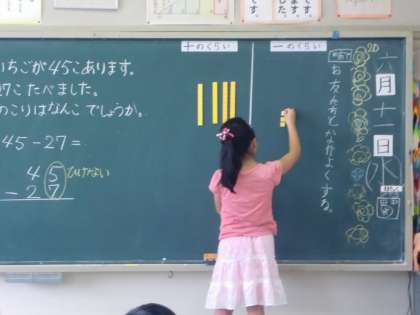 いちごが45こあります。
27こたべました。
のこりはなんこでしょうか。
45-27=
45
-27
ひけない
十のくらい
一のくらい
お友だちとなかよくする。
六月十一日
水
20